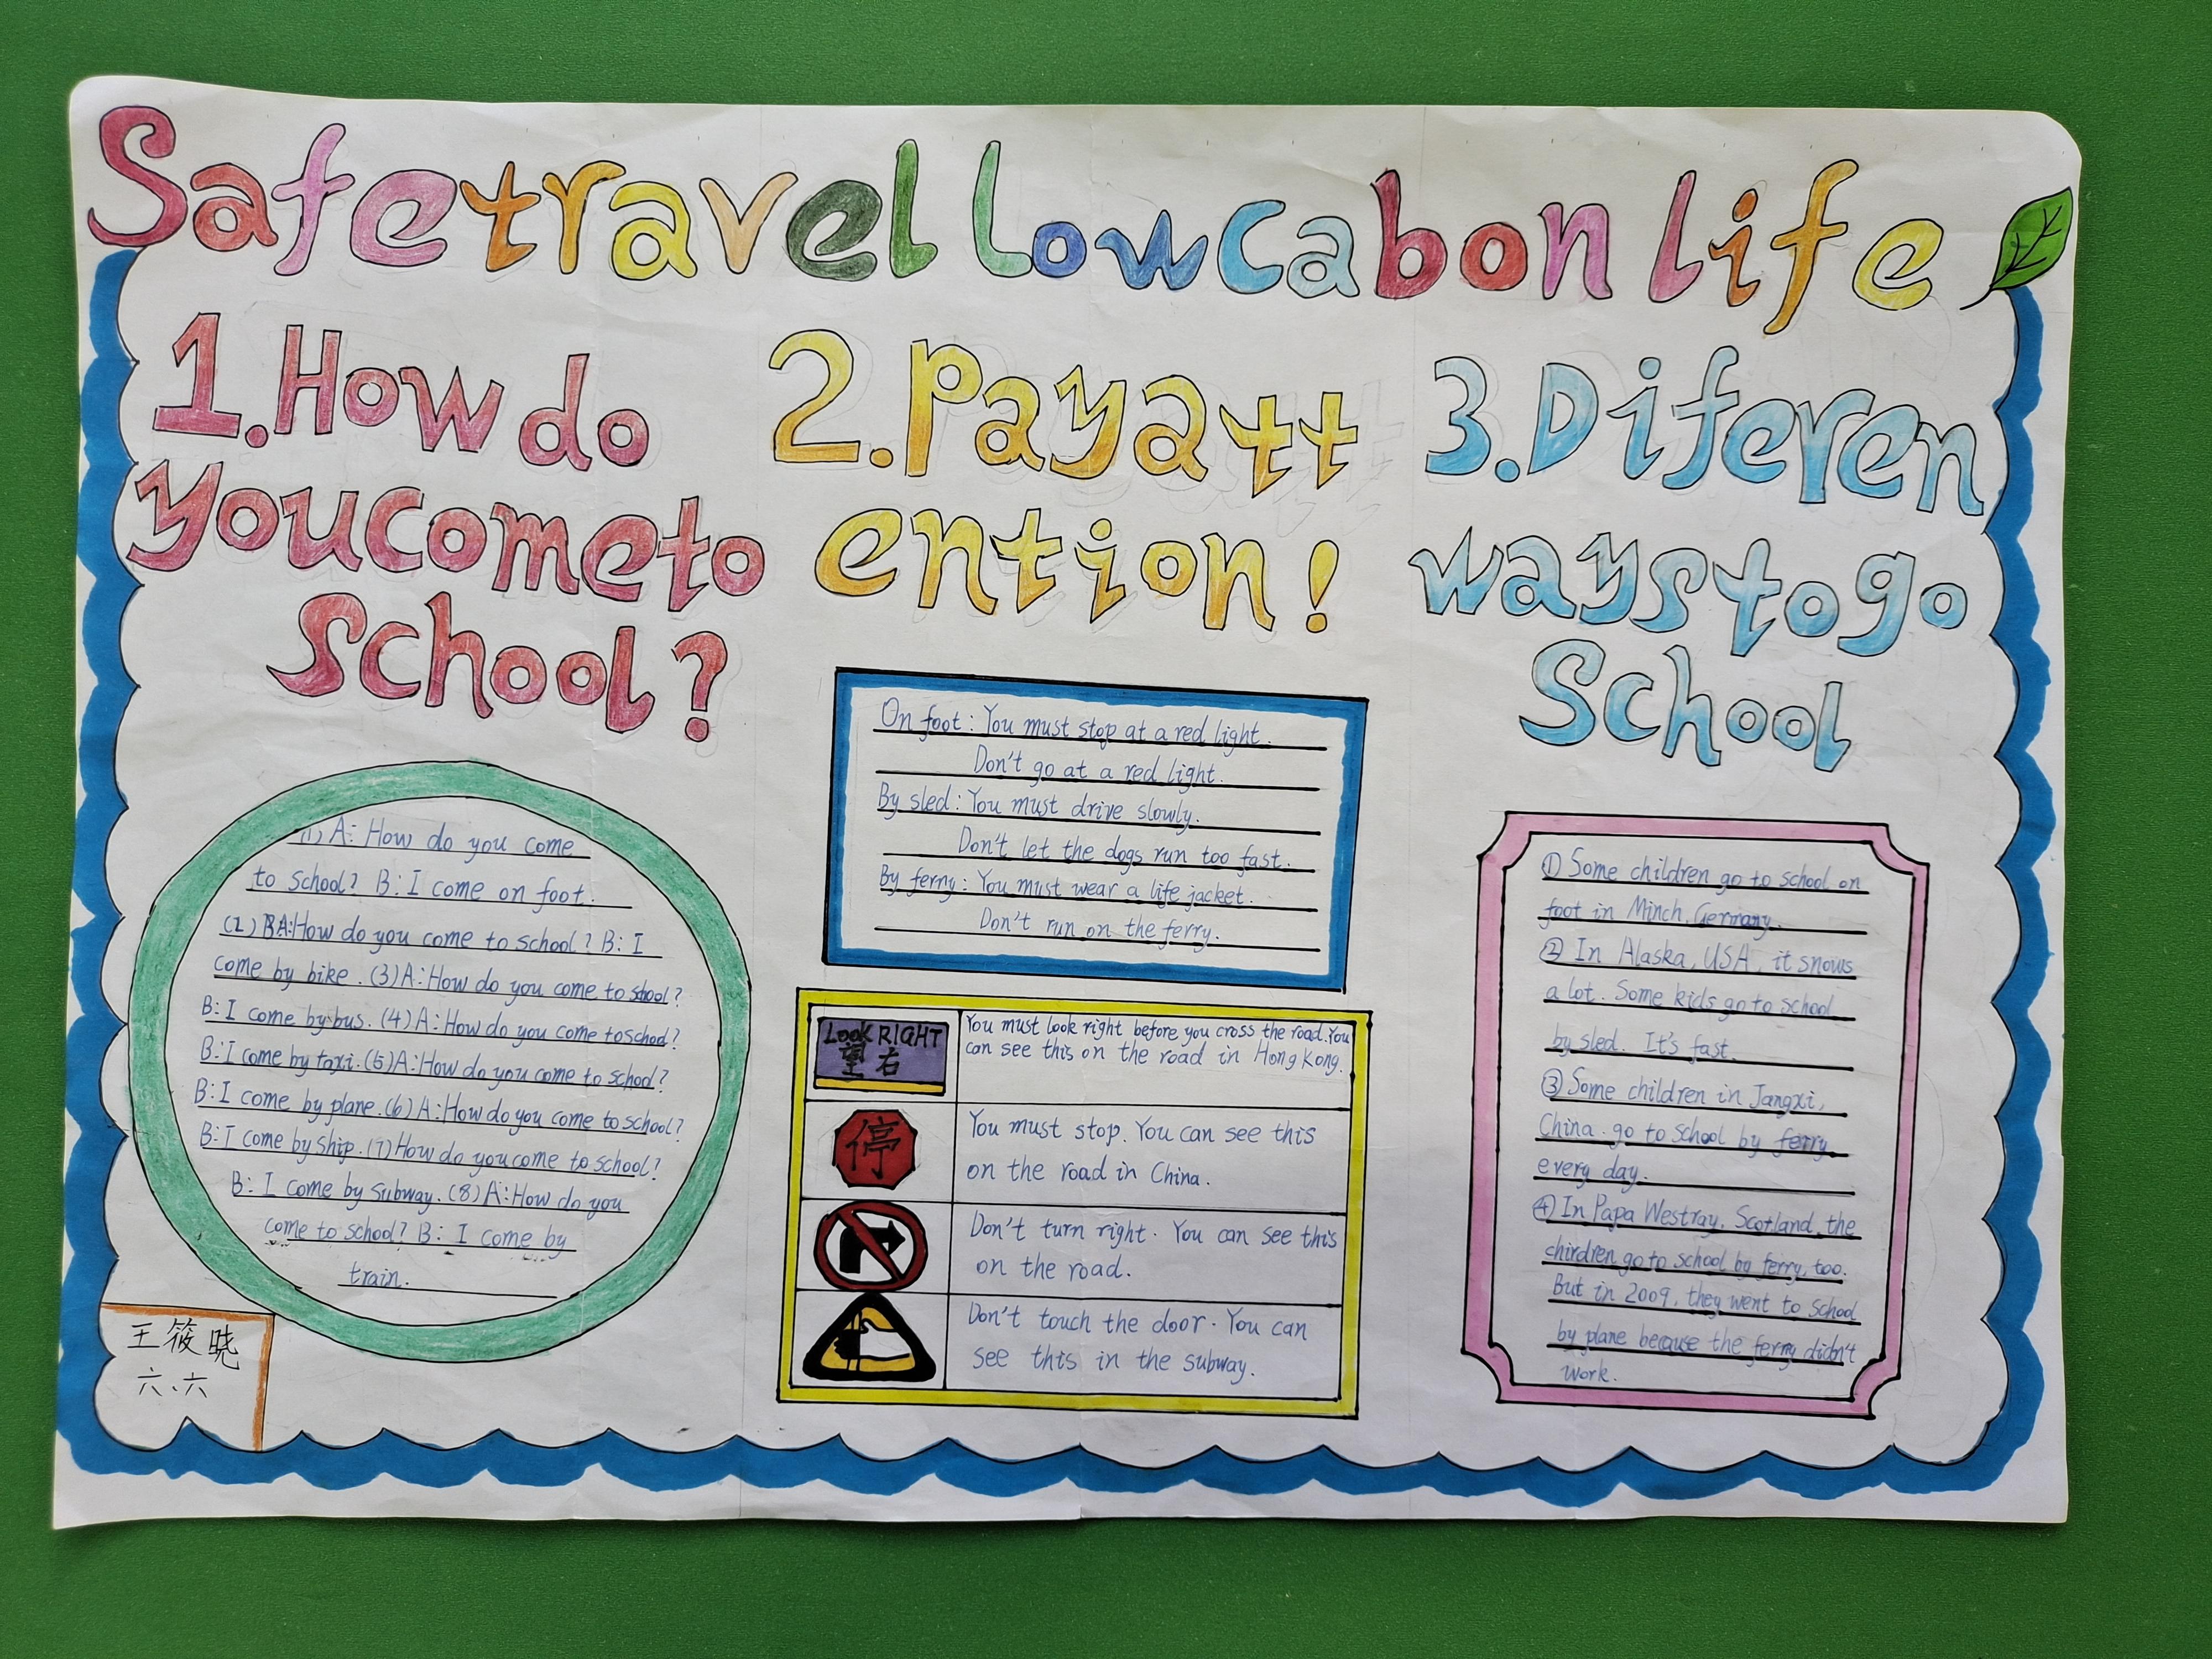 Safe travel Low cabon life
1. How do
you come to
school?
(1) A: How do you come
to school? B: I come on foot.
(2) BA: How do you come to school? B: I
come by bike. (3) A: How do you come to school?
B: I come by bus. (4) A: How do you come to school?
B: I come by taxi. (5) A: How do you come to school?
B: I come by plane. (6) A: How do you come to school?
B: I come by ship. (7) How do you come to school?
B: I come by subway. (8) A: How do you
come to school? B: I come by
train.
王筱晓
六、六
2. Pay att
ention!
On foot: You must stop at a red light.
Don't go at a red light.
By sled: You must drive slowly.
Don't let the dogs run too fast.
By ferry: You must wear a life jacket.
Don't run on the ferry.
LOOK RIGHT
望右
You must look right before you cross the road. You
can see this on the road in Hong Kong.
停
You must stop. You can see this
on the road in China.
Don't turn right. You can see this
on the road.
Don't touch the door. You can
see this in the subway.
3. Diferen
ways to go
School
① Some children go to school on
foot in Minch, Germany.
② In Alaska, USA, it snows
a lot. Some kids go to school
by sled. It's fast.
③ Some children in Jangxi,
China. go to school by ferry.
every day.
④ In Papa Westray, Scotland, the
chirdren go to school by ferry, too.
But in 2009, they went to school
by plane because the ferry didn't
work.